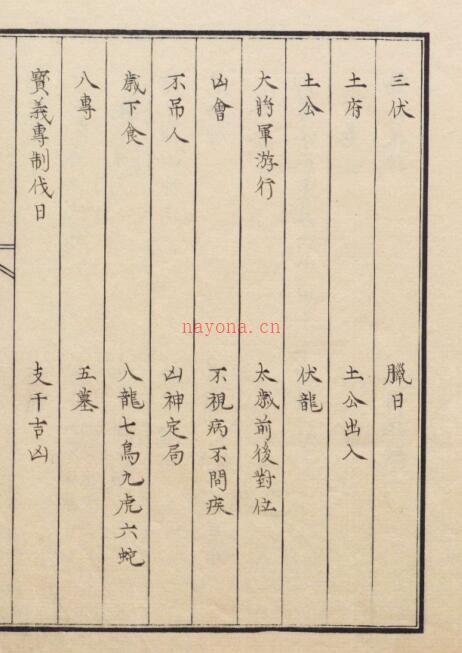 三伏 臘日
土府 土公出入
土公 伏龍
大將軍游行 太歲前後對位
凶會 不視病不問疾
不吊人 凶神定局
歲下食 八龍七鳥九虎六蛇
八專 五墓
寳義專制伐日 支干吉凶
nayona.cn